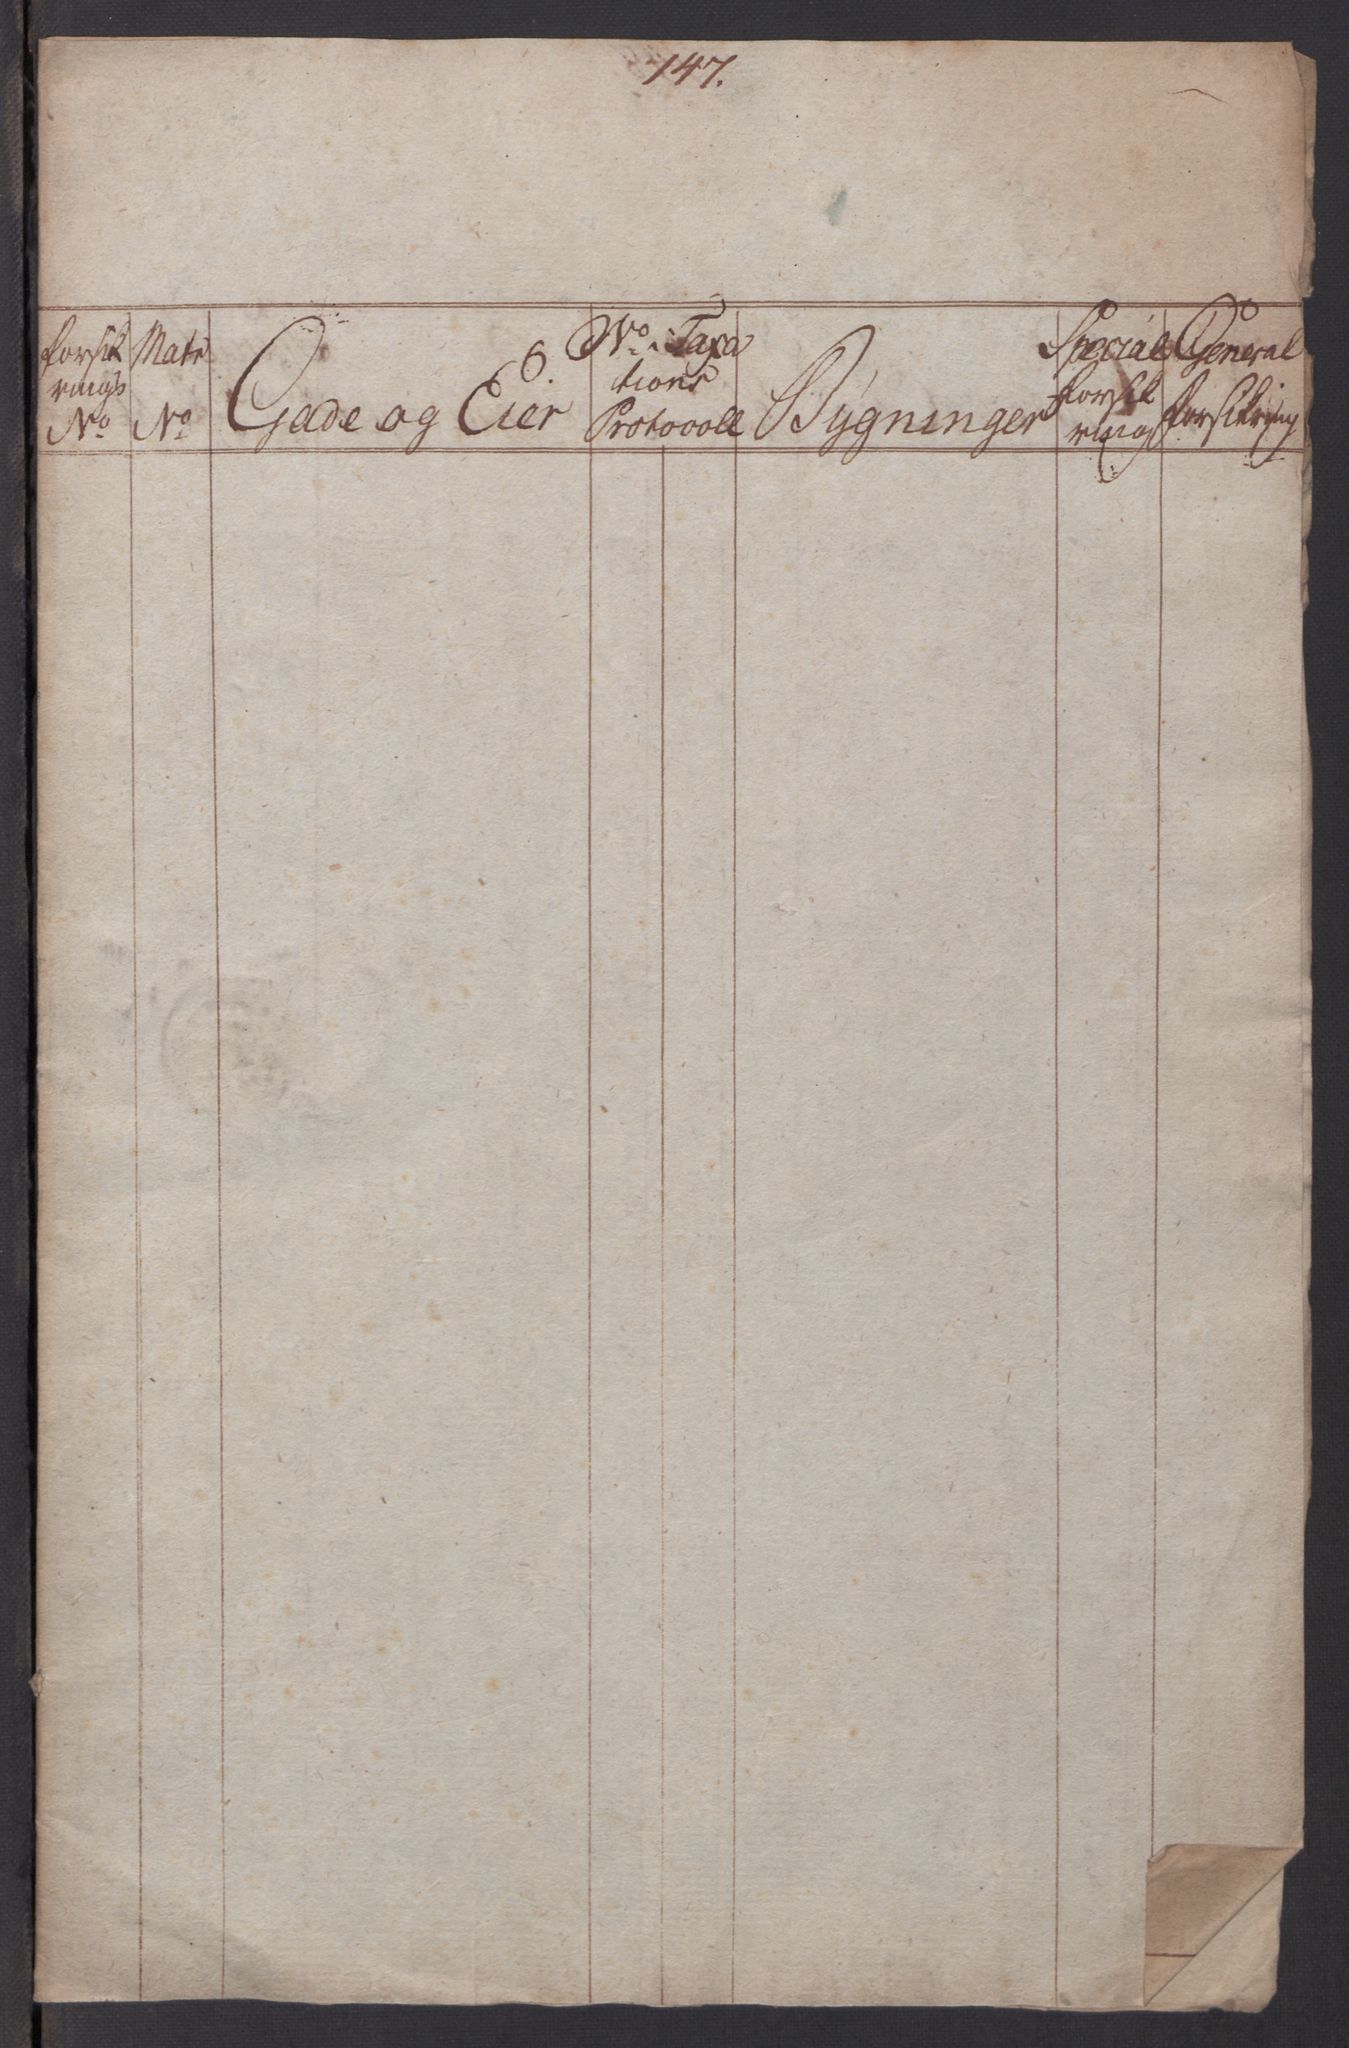 147.
forsik
rings
No
Matr
No
Gade og Eier
No i Taxa
tions
Protocoll
Bygninger
Special
forsik
ring
General
forsikring